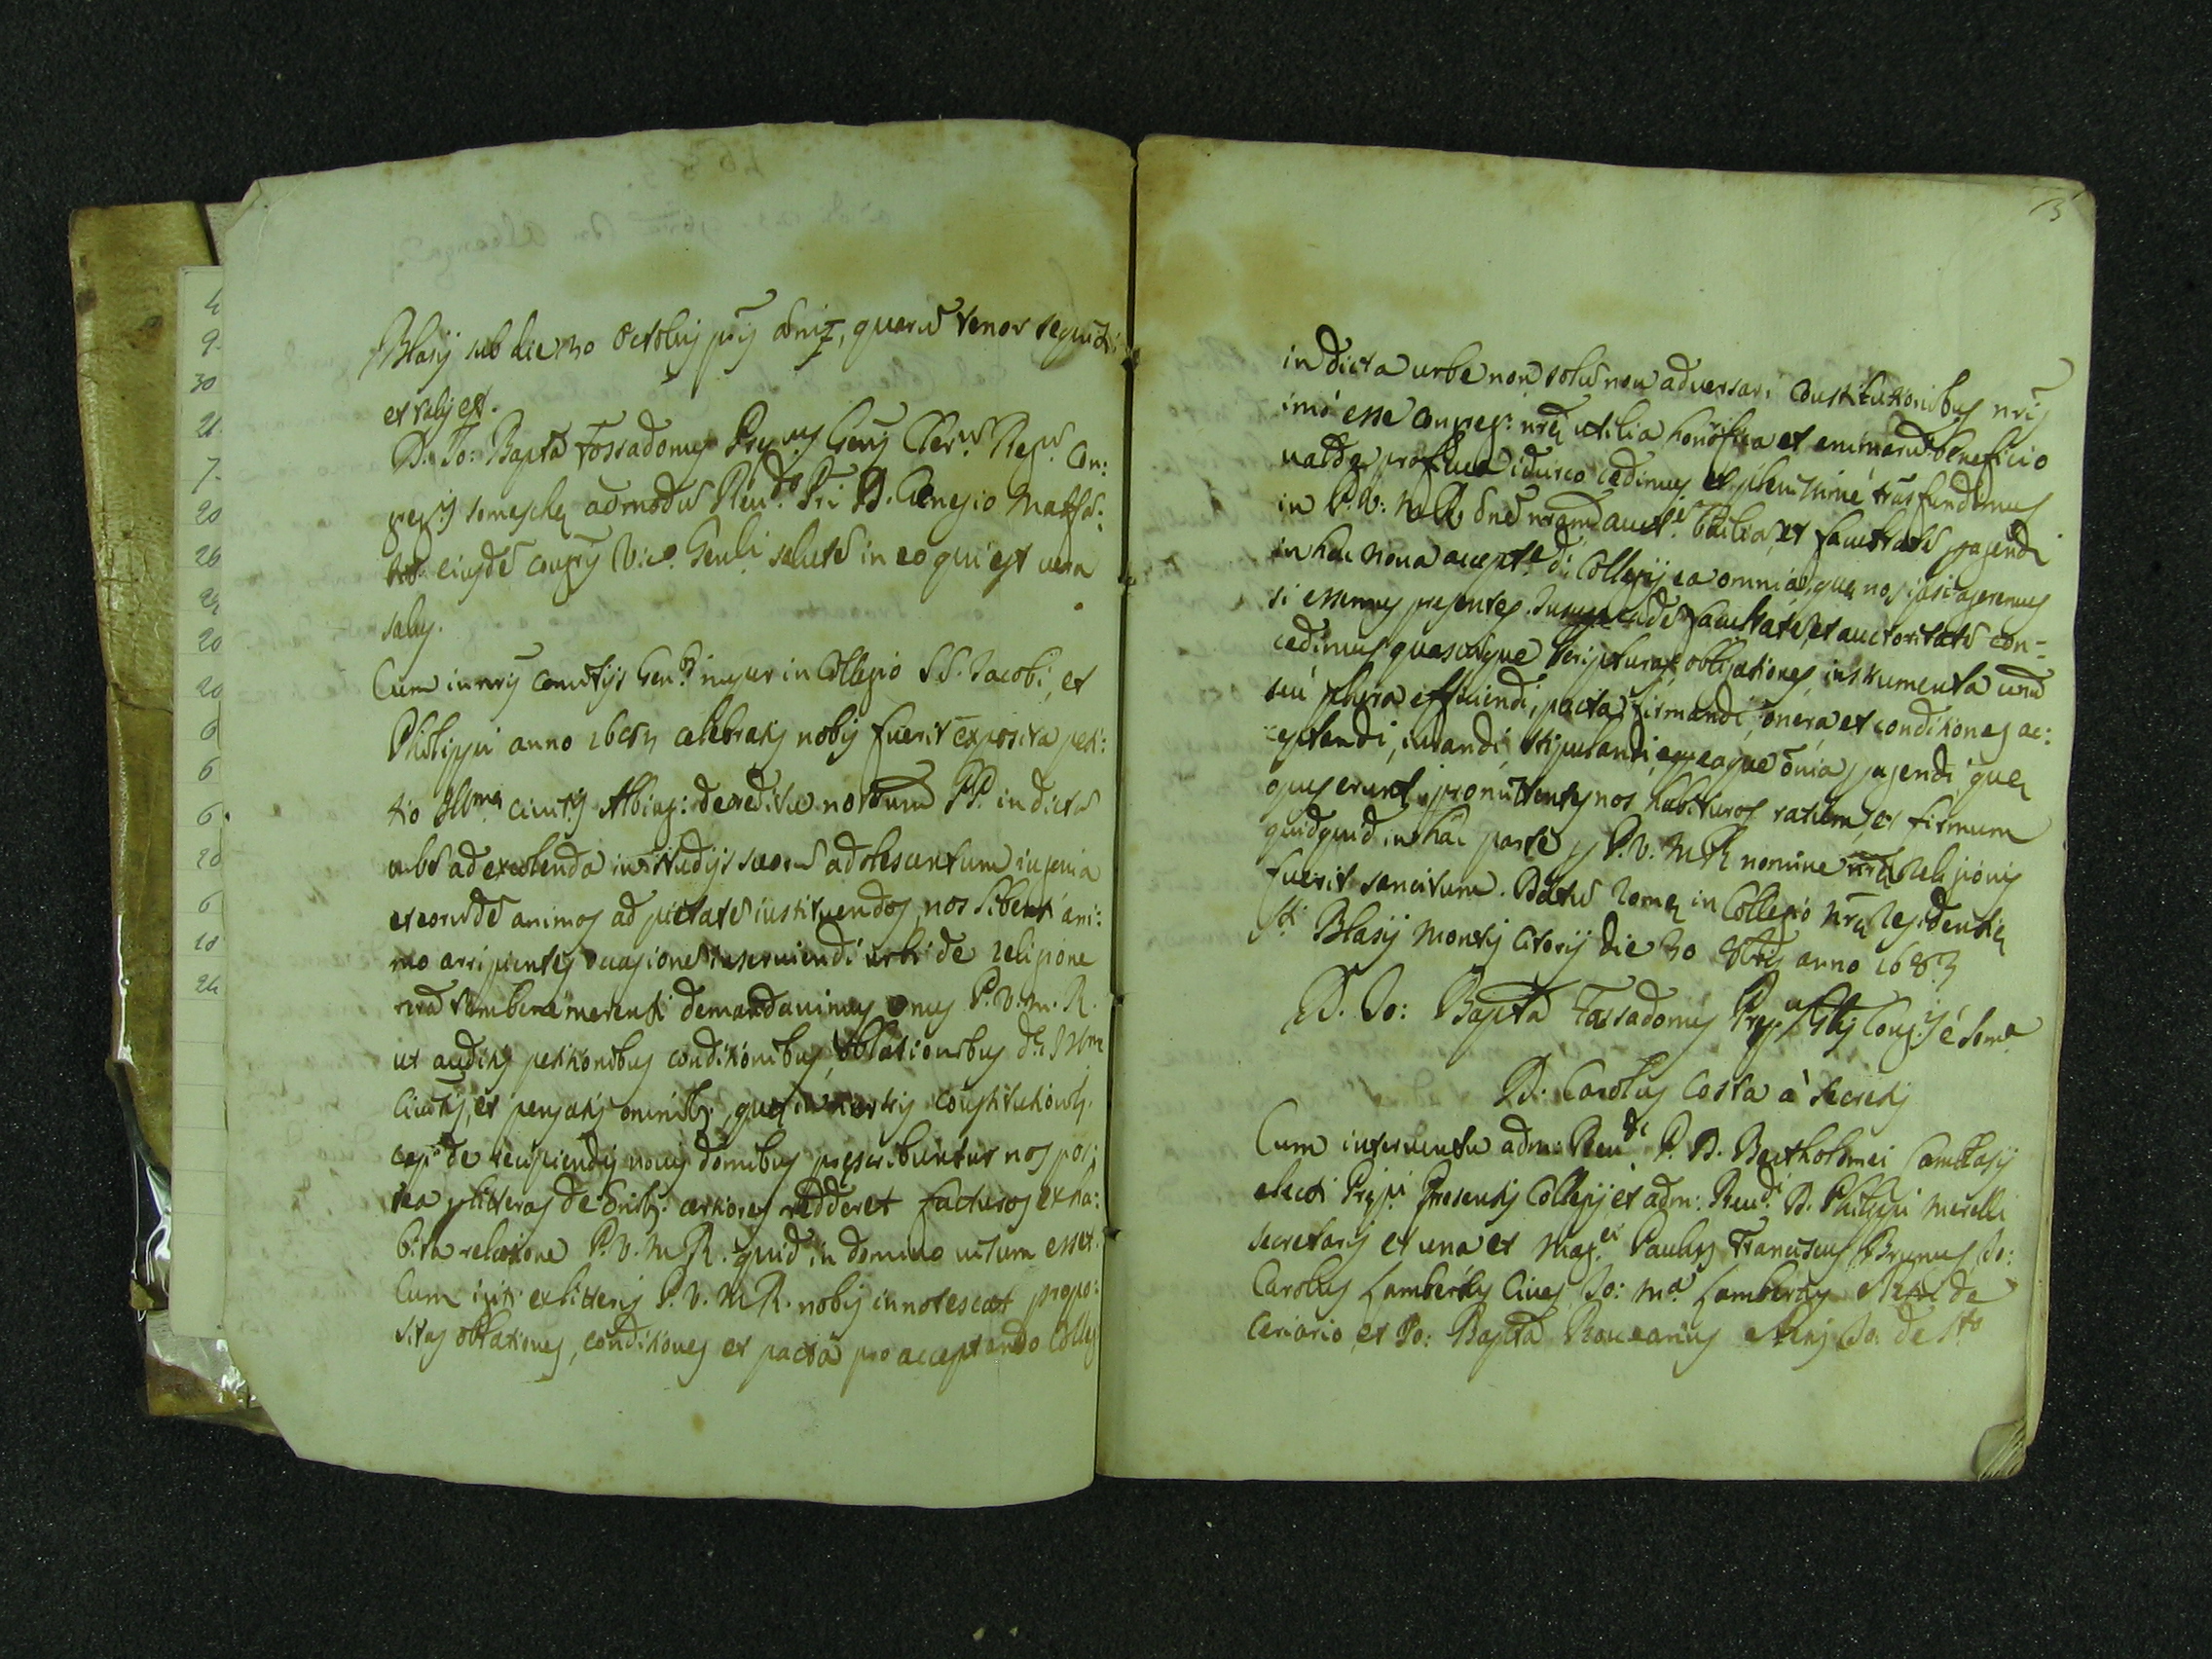 Blasij sub die 30 Octobris pnis anni, quarū tenor sequitur
et talis est.
D. Io: Bapta Fossadomus Prep.us Gen.lis Cler.m Reg.m Con:
greg.is Somaschę admodū Reu.do Pri D.
eiusdē congr.is Vic.o Gen.li salutē in eo qui est uera
salus.
Cum in nris comitijs Gen.bus nuper in Collegio SS. Iacobi, et
Philippi anno 1683 celebratis nobis fuerit exposita peti:
tio Ill.mę Ciuit.is Albing: de reditu nostrum PP. in dictā
urbē ad excolenda in studijs suorū adolescentum ingenia
et eorūdē animos ad pietatē instituendos, nos libenti ani:
mo arripientes occasionē inseruiendi urbi de religione
nrā tam bene merenti demandauimus onus P. V. M. R.
ut auditis petitionibus conditionibus, oblationibus d.ę Ill.mę
Ciuitis, et pensatis omnib: quę in nostris constitutionib:
cap.o de recipiendis nouis domibus pręscribuntur nos pos:
tea p litteras de omib: certiores redderet facturos ex ha:
bita relatione P. V. M. R. quid in domino uisum esset.
Cum igitr ex litteris P. V. M. R. nobis innotescat propo:
sitas oblationes, conditiones et pacta pro acceptando Colleg
3
in dicta urbe non solū non aduersari Constitutionibus nris
imò esse Congreg: nrę utilia honorifica et animarū beneficio
ualde proficua idcirco cedimus et plenissime trasfundimus
in P. V. M. R. omē nram auct.e et facultatē pagendi
in hac noua accept.e d.i Collegij ea omnia, quę nos ipsi ageremus
si essemus presentes. facultatē et auctoritatē con-
cedimus quascūque scripturas, obligationes, instrumenta unū
seu plura efficiendi, pacta firmandi, onera et conditiones ac:
ceptandi, iurandi, stipulandi, eaque omia pagendi, quę
opus erunt, promittentes nos habituros ratum, et firmum
quidquid in hac parte p P. V. M. R. nomine nrę Religionis
fuerit sancitum. Datū Romę in Collegio nrę Residentię
S.ti Blasij Montis Citorij die 30 8bris anno 1683
D. Io: Bapta Fossadomus Prep.us Glis Cong.is è Som.a
D. Carolus Costa à Secretis
Cum interuentu adm: Reu.di P. D. Bartholomei
electi Prepi. Presentis Collegij et adm: Reu.di D. Philippi Merelli
secretarij et una et Mag.ci Paulus Franciscus Brunus Io:
Carolus Lambertus Ciues Io: M.a Lambertus de
Ceriario, et Io: Bapta Io: de S.to